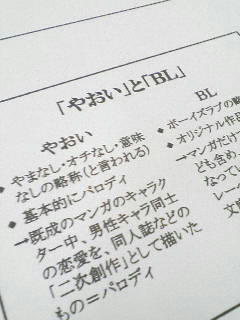 「やおい」と「BL」
やおい
◆ やまなし・オチなし・意味
なしの略称(と言われる)
◆ 基本的にパロディ
→既成のマンガのキャラク
ター中、男性キャラ同士
の恋愛を、同人誌などの
「二次創作」として描いた
もの=パロディ
BL
◆ ボーイズラブの略
◆ オリジナル作品
→マンガだけ
ども含め
なってい
レー
文